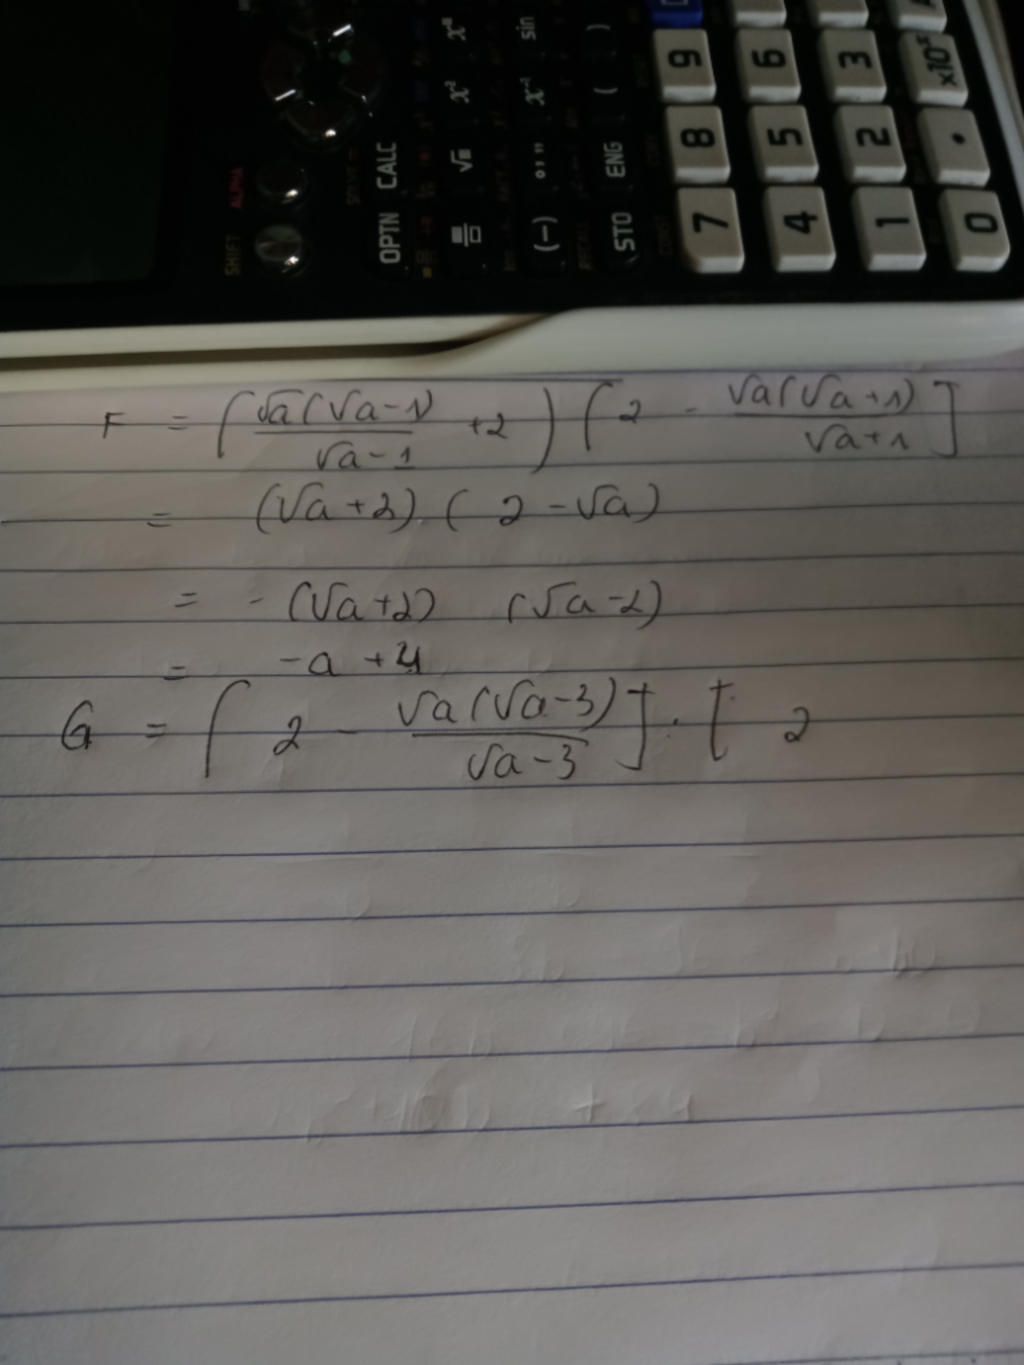 SHIFT ALPHA
OPTN CALC
√■ x² x■
(−) °’” x⁻¹ sin
STO ENG ( )
7 8 9
4 5 6
1 2 3
0 • ×10ˣ
F = (√a(√a-1)/√a-1 +2) [2 - √a(√a+1)/√a+1]
= (√a+2).( 2-√a)
= - (√a+2) (√a-2)
= -a +4
G = [ 2 - √a(√a-3)/√a-3 ] . [ 2